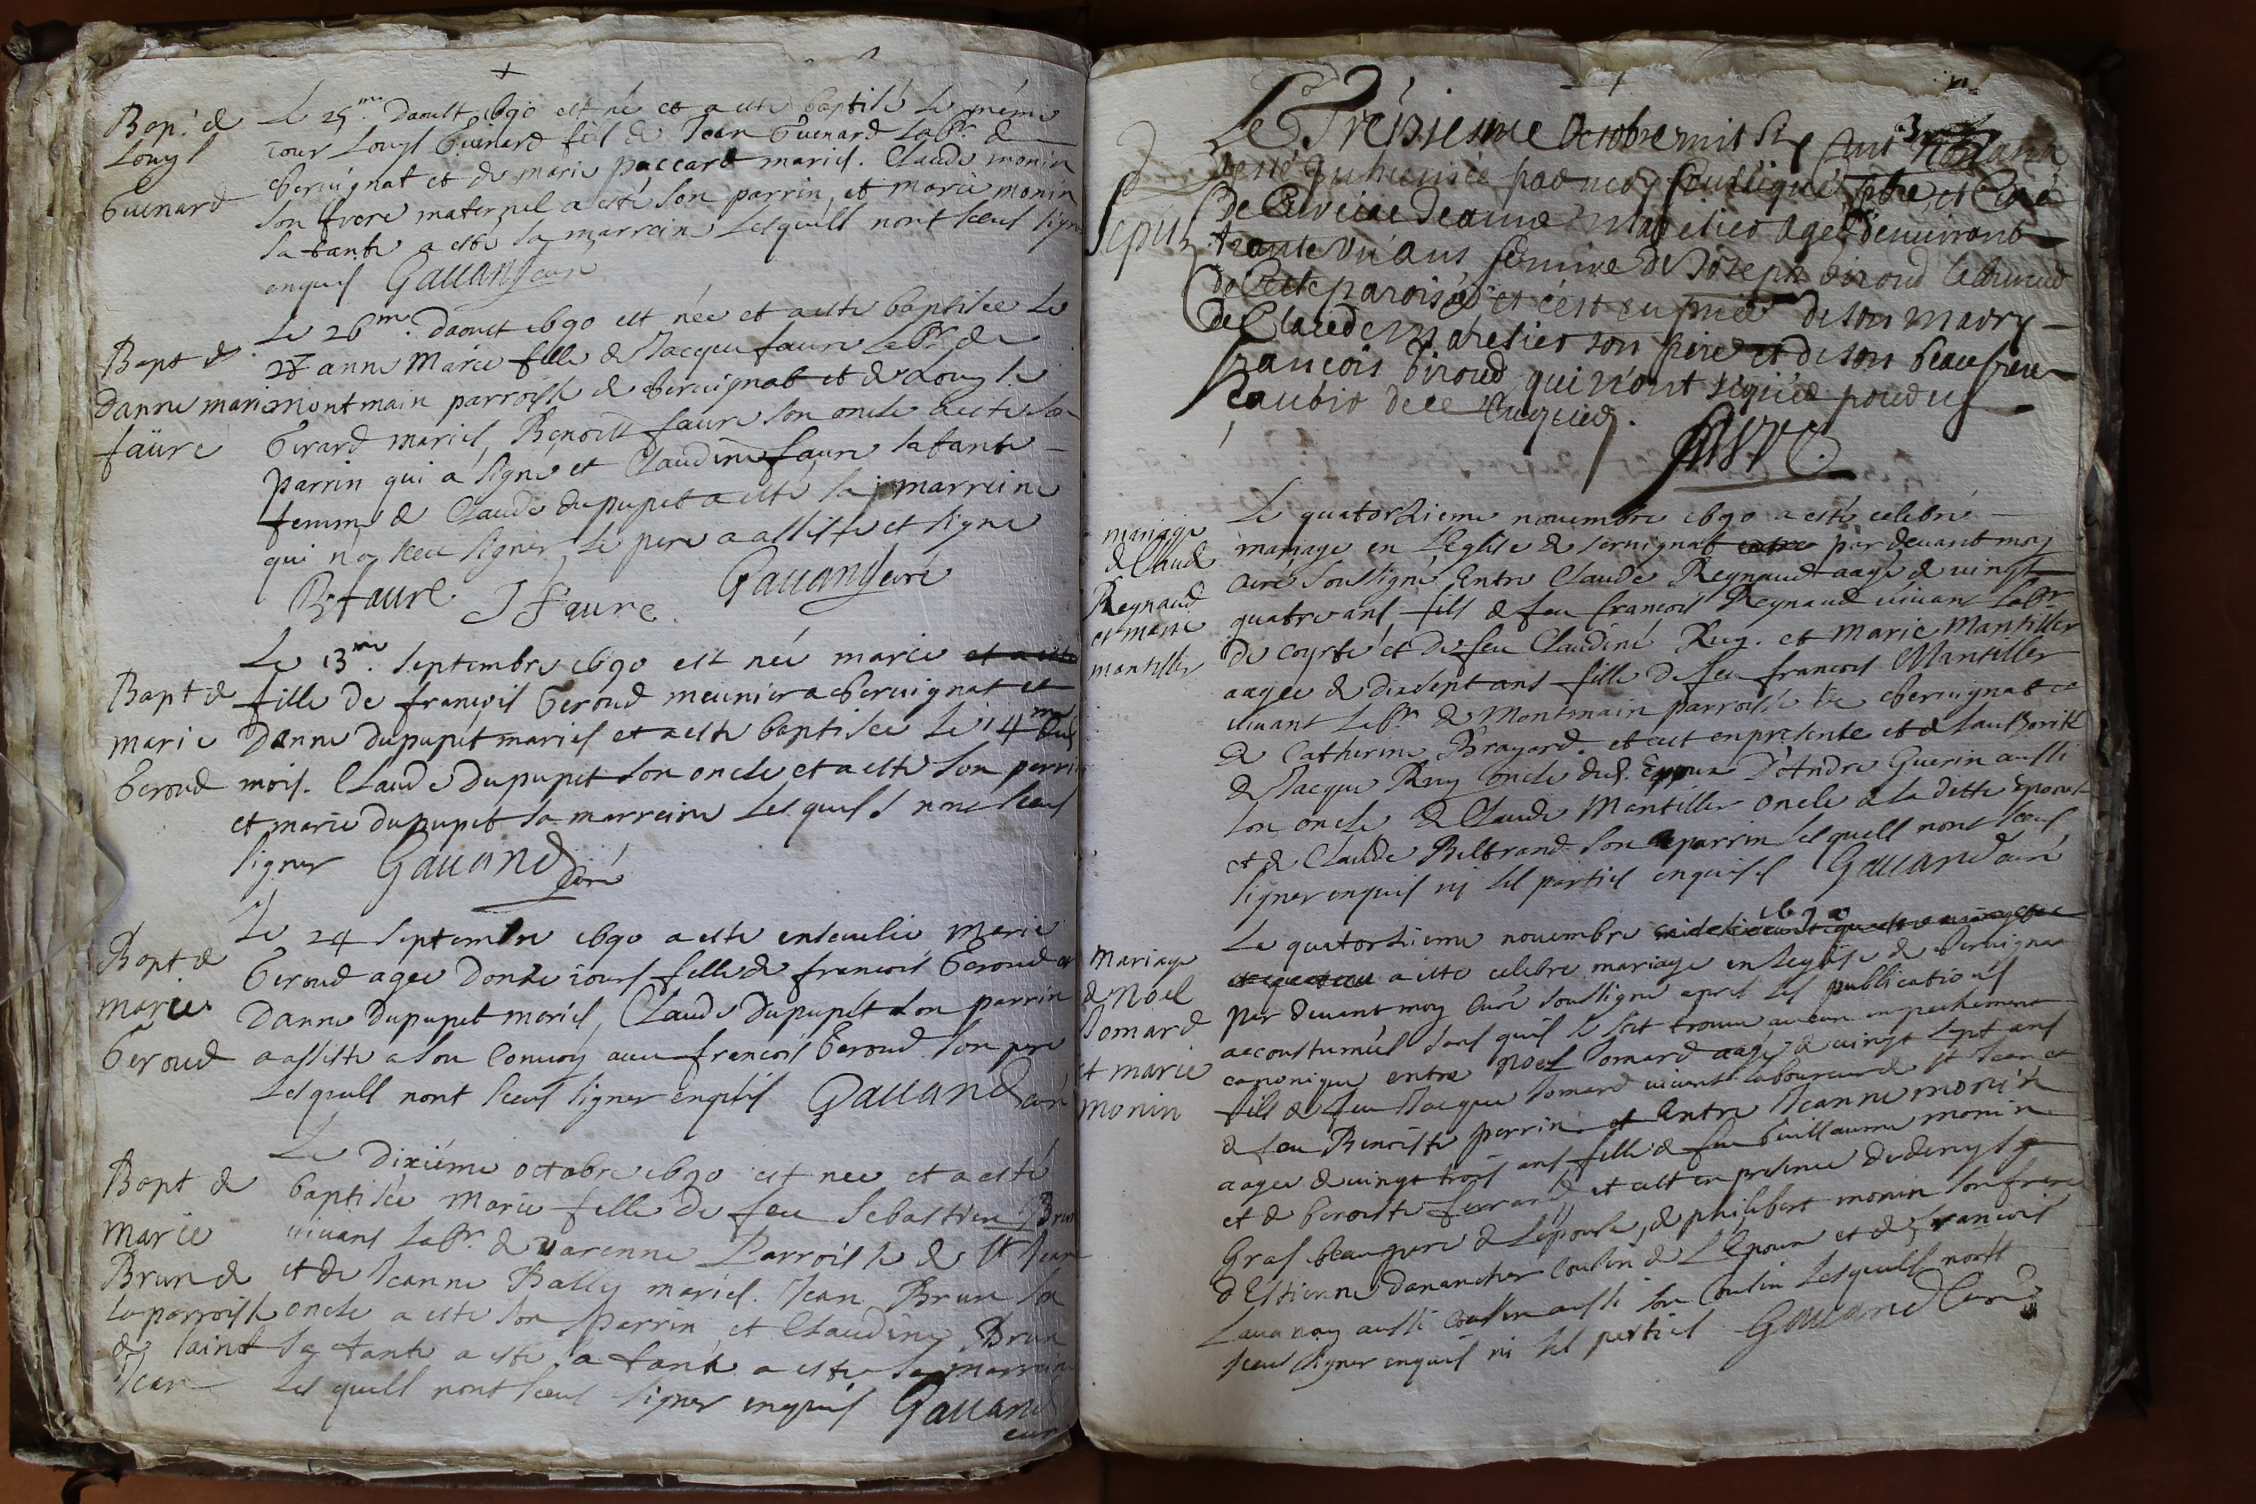 Bap.t de
Louys
Guenard
Le 25me. Daoust 1690 est né et a esté baptisé le même
iour Louys Guenard fils de Jean Guenard labr. de
cheruignat et de marie paccard mariés. Claude monin
son frere maternel a esté son parrin, et marie monin
sa tante a esté sa marraine Lesquells nont sceus signer
enquis Gauand curé
Bapt de
Danne marie
faure
Le 26me. Daoust 1690 est née et a esté baptisée le
27 anne Marie fille de Jacque faure Labr. de
montmain parroisse de cheruignat et de Louyse
Girard mariés, Benoist faure son oncle a esté son
parrin qui a signé et Claudine faure sa tante
femme de Claude dupupet a esté sa marreine
qui n'a sceu signer, le pere a assisté et signé
B. faure J faure Gauand curé
Bapt de
marie
Geroud
Le 13me. septembre 1690 est née marie et a esté
fille de françois Geroud meunier a cheruignat et
Danne dupupet mariés et a esté baptisée le 14me dud
mois. Claude dupupet son oncle et a esté son perrin
et marie dupupet sa marreine Lesquels nont sceus
signer Gauand Curé
Bapt de
marie
Geroud
Le 24 septembre 1690 a esté enseuelie Marie
Geroud agee Donze iours fille de francois Geroud et
Danne dupupet mariés, Claude dupupet son parrin
a assisté a son Conuoy auec francois Geroud son pere
Lesquells nont sceus signer enquis Gauand curé
Bapt de
Marie
Brun de
la parroisse
de saint
Jean
Le Dixiéme octobre 1690 est nee et a esté
baptisée Marie fille de feu Sebastien Brun
uiuant labr. de Varenne Parroisse de St Jean
et de Jeanne Bally mariés. Jean Brun son
oncle a esté son parrin et Claudine Brun
sa tante a esté a tante a esté sa marreine
Les quells nont sceus signer enquis Gauand
curé
Sepul
Le Tresiesme Octobre mil six
a esté inhumée par moy soussigné ptre et Curé
De Jeanne Maresier agee d'enuiront
trante un ans femme de Joseph Giroud
de cette paroisse et c'est en pnce de son marry
De Claude Maresier son pere et de son beaufrere
françois Giroud qui n'ont signés pour ne
scauoir de ce Enquies.
mariage
de Claude
Reynaud
et marie
mantillier
Le quatorzieme nouembre 1690 a esté celebré
mariage en L'eglise de seruignat entre par deuant moy
curé soussigné Entre Claude Reynaud aagé de uingt
quatre ans, fils de feu françois Reynaud uiuant labr.
de coyrte et de feu Claudine Ruy. et Marie Mantiller
aagee de dixsept ans fille de feu francois Mantiller
uiuant labr. de Montmain parroisse de cheruignat et
de Catherine Brayard. et cest en presence et de l'authorité
de Jacque Ruy oncle dud. Epoux D'Andre Guerin aussi
son oncle de Claude Mantiller oncle a la ditte Epouse
et de Claude Beltrand son parrin lesquells nont sceus
signer enquis ny les parties enquises Gauand curé
Mariage
de Noel
Somard
et marie
monin
Le quatorzieme nouembre 1690
a esté celebré mariage en l'eglise de cheruignat
par deuant moy Curé soussigné apres les publications
accoustumées sans quil se soit trouué aucun empechement
canonique entre Noel Somard aagé de uingt sept ans
fils de feu Jacque Somard uiuant laboureur de St Jean et
de feu Benoiste perrin et Entre Jeanne monin
aagee de uingt trois ans, fille de feu Guillaume monin
et de benoiste ferrand, et cest en presence de denys
Gras beaupere de L'epouse, de philibert monin son frere
d'Estienne danancher cousin de L'Epoux et de francois
Lauanoy aussi cousin aussi son Cousin Lesquells nont
sceus signer enquis ni les parties Gauand Curé